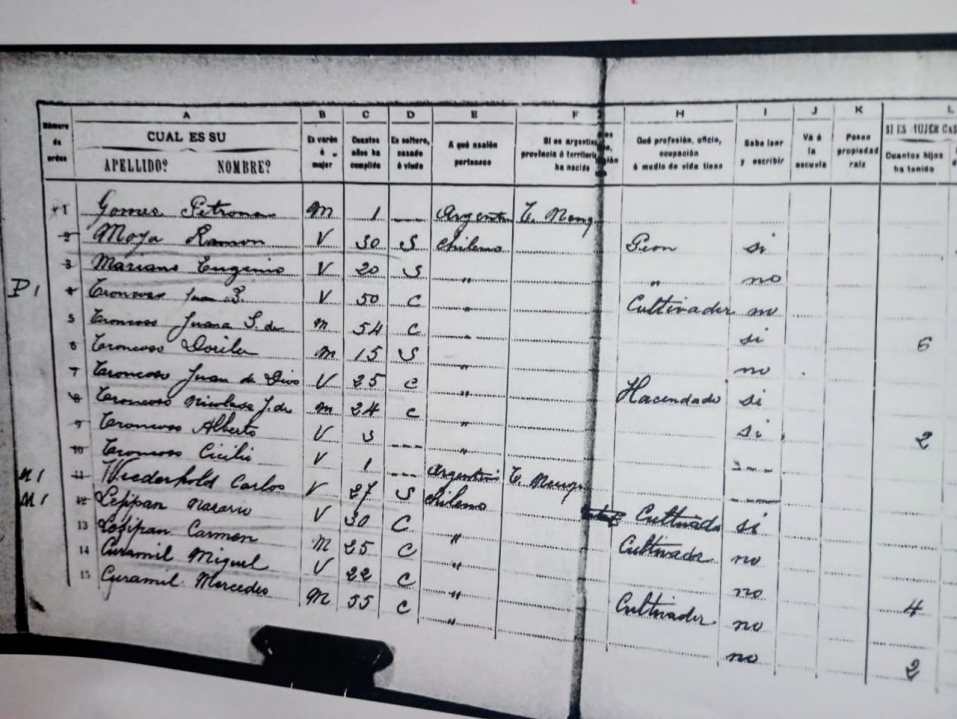 A B C D E F H I J K L
Número de orden CUAL ES SU APELLIDO? NOMBRE? Es varón ó mujer Cuantos años ha cumplido Es soltero, casado ó viudo A qué nación pertenece Si es argentino provincia ó territorio ha nacido Qué profesión, oficio, ocupación ó medio de vida tiene Sabe leer y escribir Vá á la escuela Posee propiedad raíz SI ES MUJER CAS Cuantos hijos ha tenido
1 Gomez Petrona M 1 Argentin T. Neuq
2 Moya Ramon V 30 S Chileno Peon si
3 Mariano Eugenio V 20 S " " no
P 1 4 Troncoso Juan S. V 50 C " Cultivador no
5 Troncoso Juana S. de m 54 C " si 6
6 Troncoso Dorila m 15 S " no
7 Troncoso Juan de Dios V 25 C " Hacendado si
8 Troncoso Nicolasa J. de m 24 C " si 2
9 Troncoso Alberto V 3
10 Troncoso Cicilio V 1 Argentin T. Neuq
11 Wiederhold Carlos V 27 S Chileno Cultivado si
12 Lefipan Nazario V 30 C " Cultivador no
13 Lefipan Carmen M 25 C " no 4
14 Curamil Miguel V 22 C " Cultivador no
15 Curamil Mercedes M 55 C " no 2